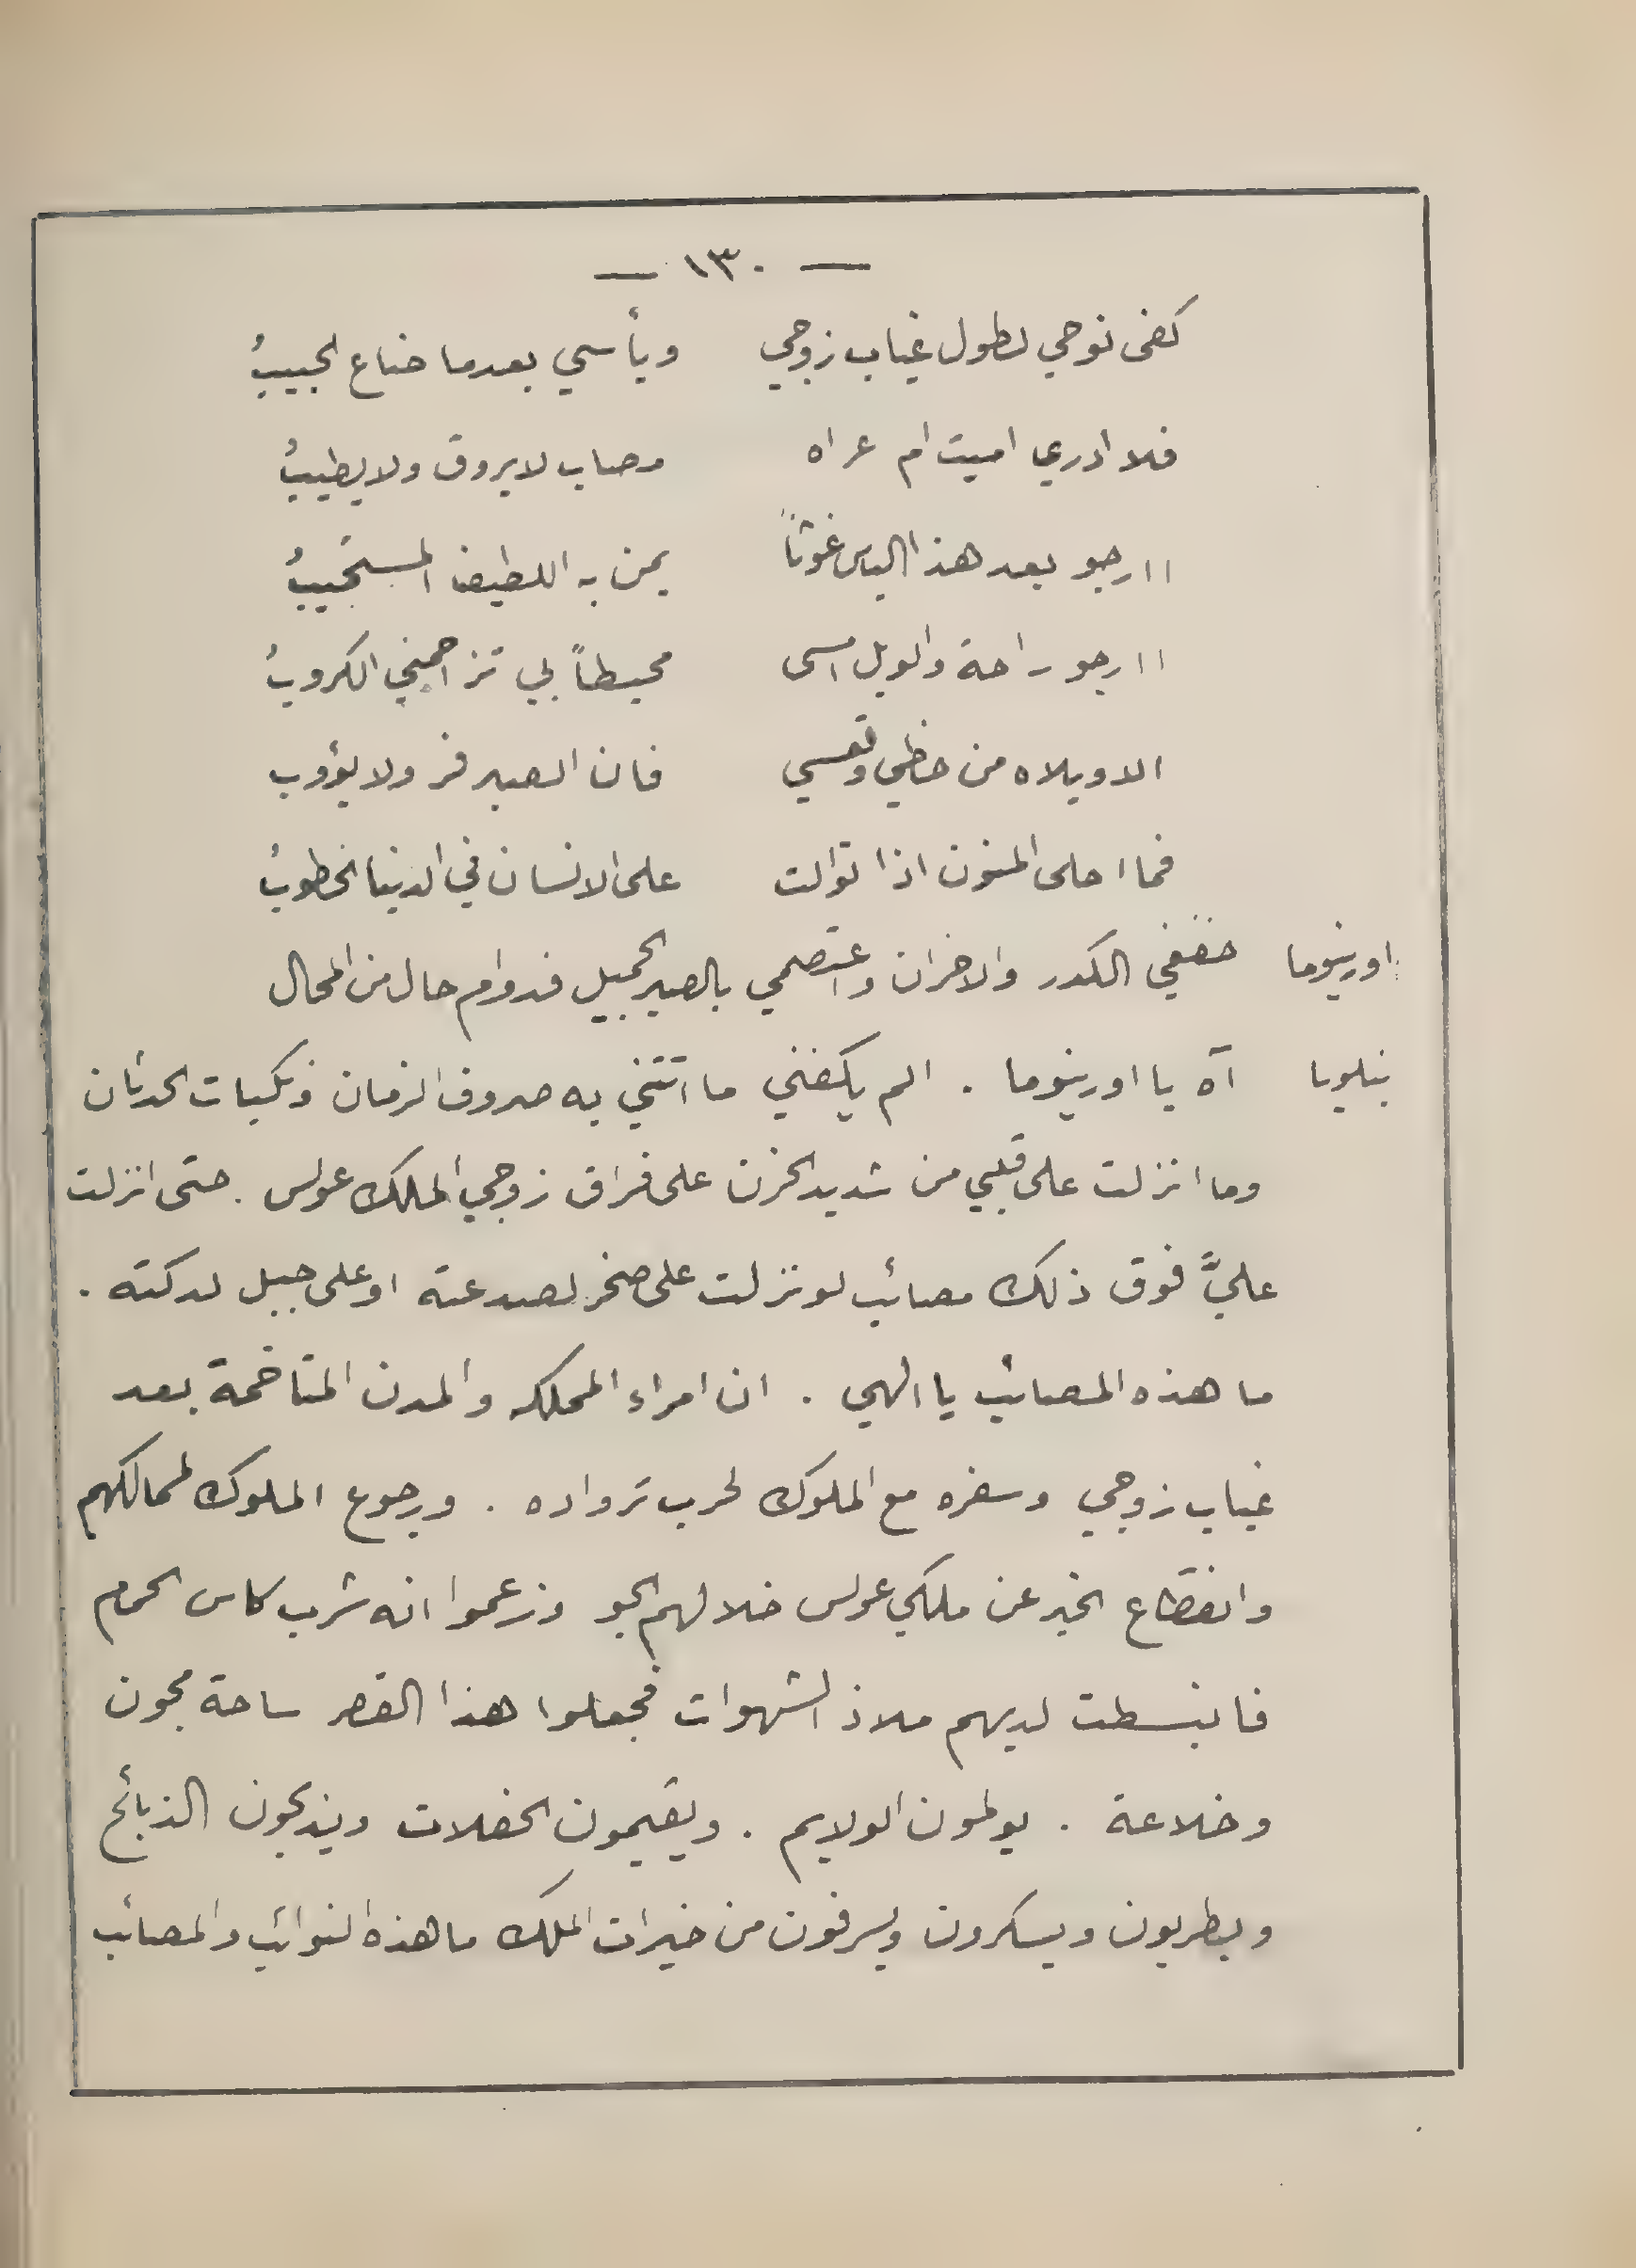 — ١٣٠ —
كفى نوحي لطول غياب زوجي ويأسي بعدما ضاع الحبيبُ
فلا ادري اميت ام عراه مصاب لا يروق ولا يطيبُ
اارجو بعد هذا الياس غوثاً يمن به اللطيف المستجيبُ
اارجو راحة والويل امسى محيطاً بي تزاحمني الكروبُ
الا ويلاه من حظي وتعسي فان الصبر فر ولا يؤوب
فما احلى المنون اذا توالت على الانسان في الدنيا الخطوبُ
اورينوما خففي الكدر والاحزان واعتصمي بالصبر الجميل فدوام حال من المحال
بنلوبا آه يا اورينوما . الم يكفني ما اتتني به صروف الزمان ونكبات الحدثان
وما انزلت على قلبي من شديد الحزن على فراق زوجي الملك عولس . حتى انزلت
عليَّ فوق ذلك مصائب لو نزلت على صخر لصدعته او على جبل لدكته .
ما هذه المصائب يا الهي . ان امراء المملكه والمدن المتاخمة بعد
غياب زوجي وسفره مع الملوك لحرب ترواده . ورجوع الملوك لممالكهم
وانقطاع الخبر عن ملكي عولس خلا لهم الجو وزعموا انه شرب كاس الحمام
فانبسطت لديهم ملاذ الشهوات فجعلوا هذا القصر ساحة مجون
وخلاعة . يولمون الولايم . ويقيمون الحفلات ويذبحون الذبائح
ويطربون ويسكرون ويسرفون من خيرات الملك ما هذه النوائب والمصائب